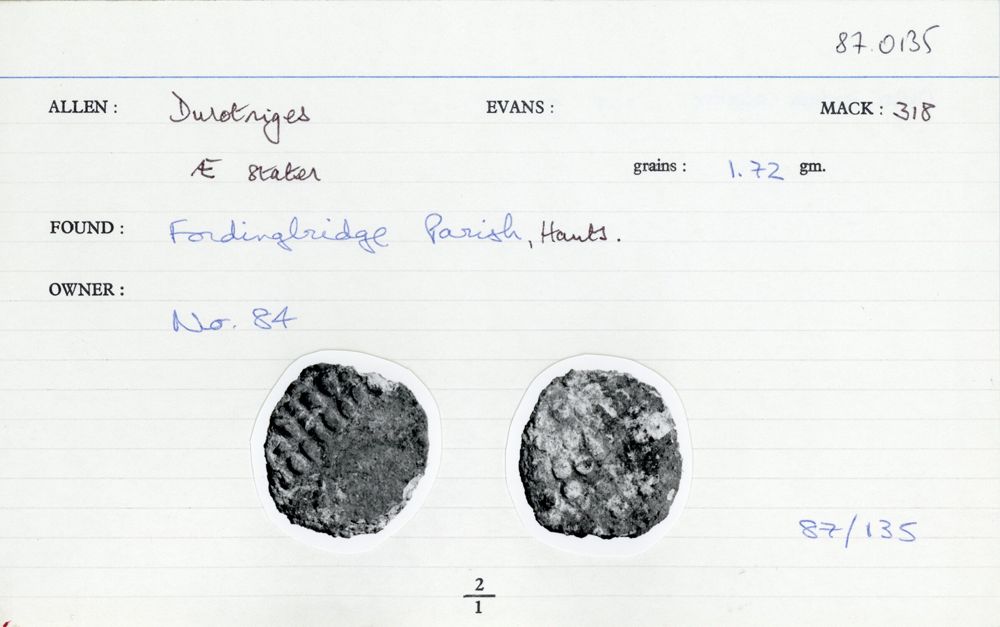 87.0135
ALLEN : Durotriges EVANS : MACK : 318
Æ stater grains : 1.72 gm.
FOUND : Fordingbridge Parish, Hants.
OWNER :
No. 84
87/135
2
1